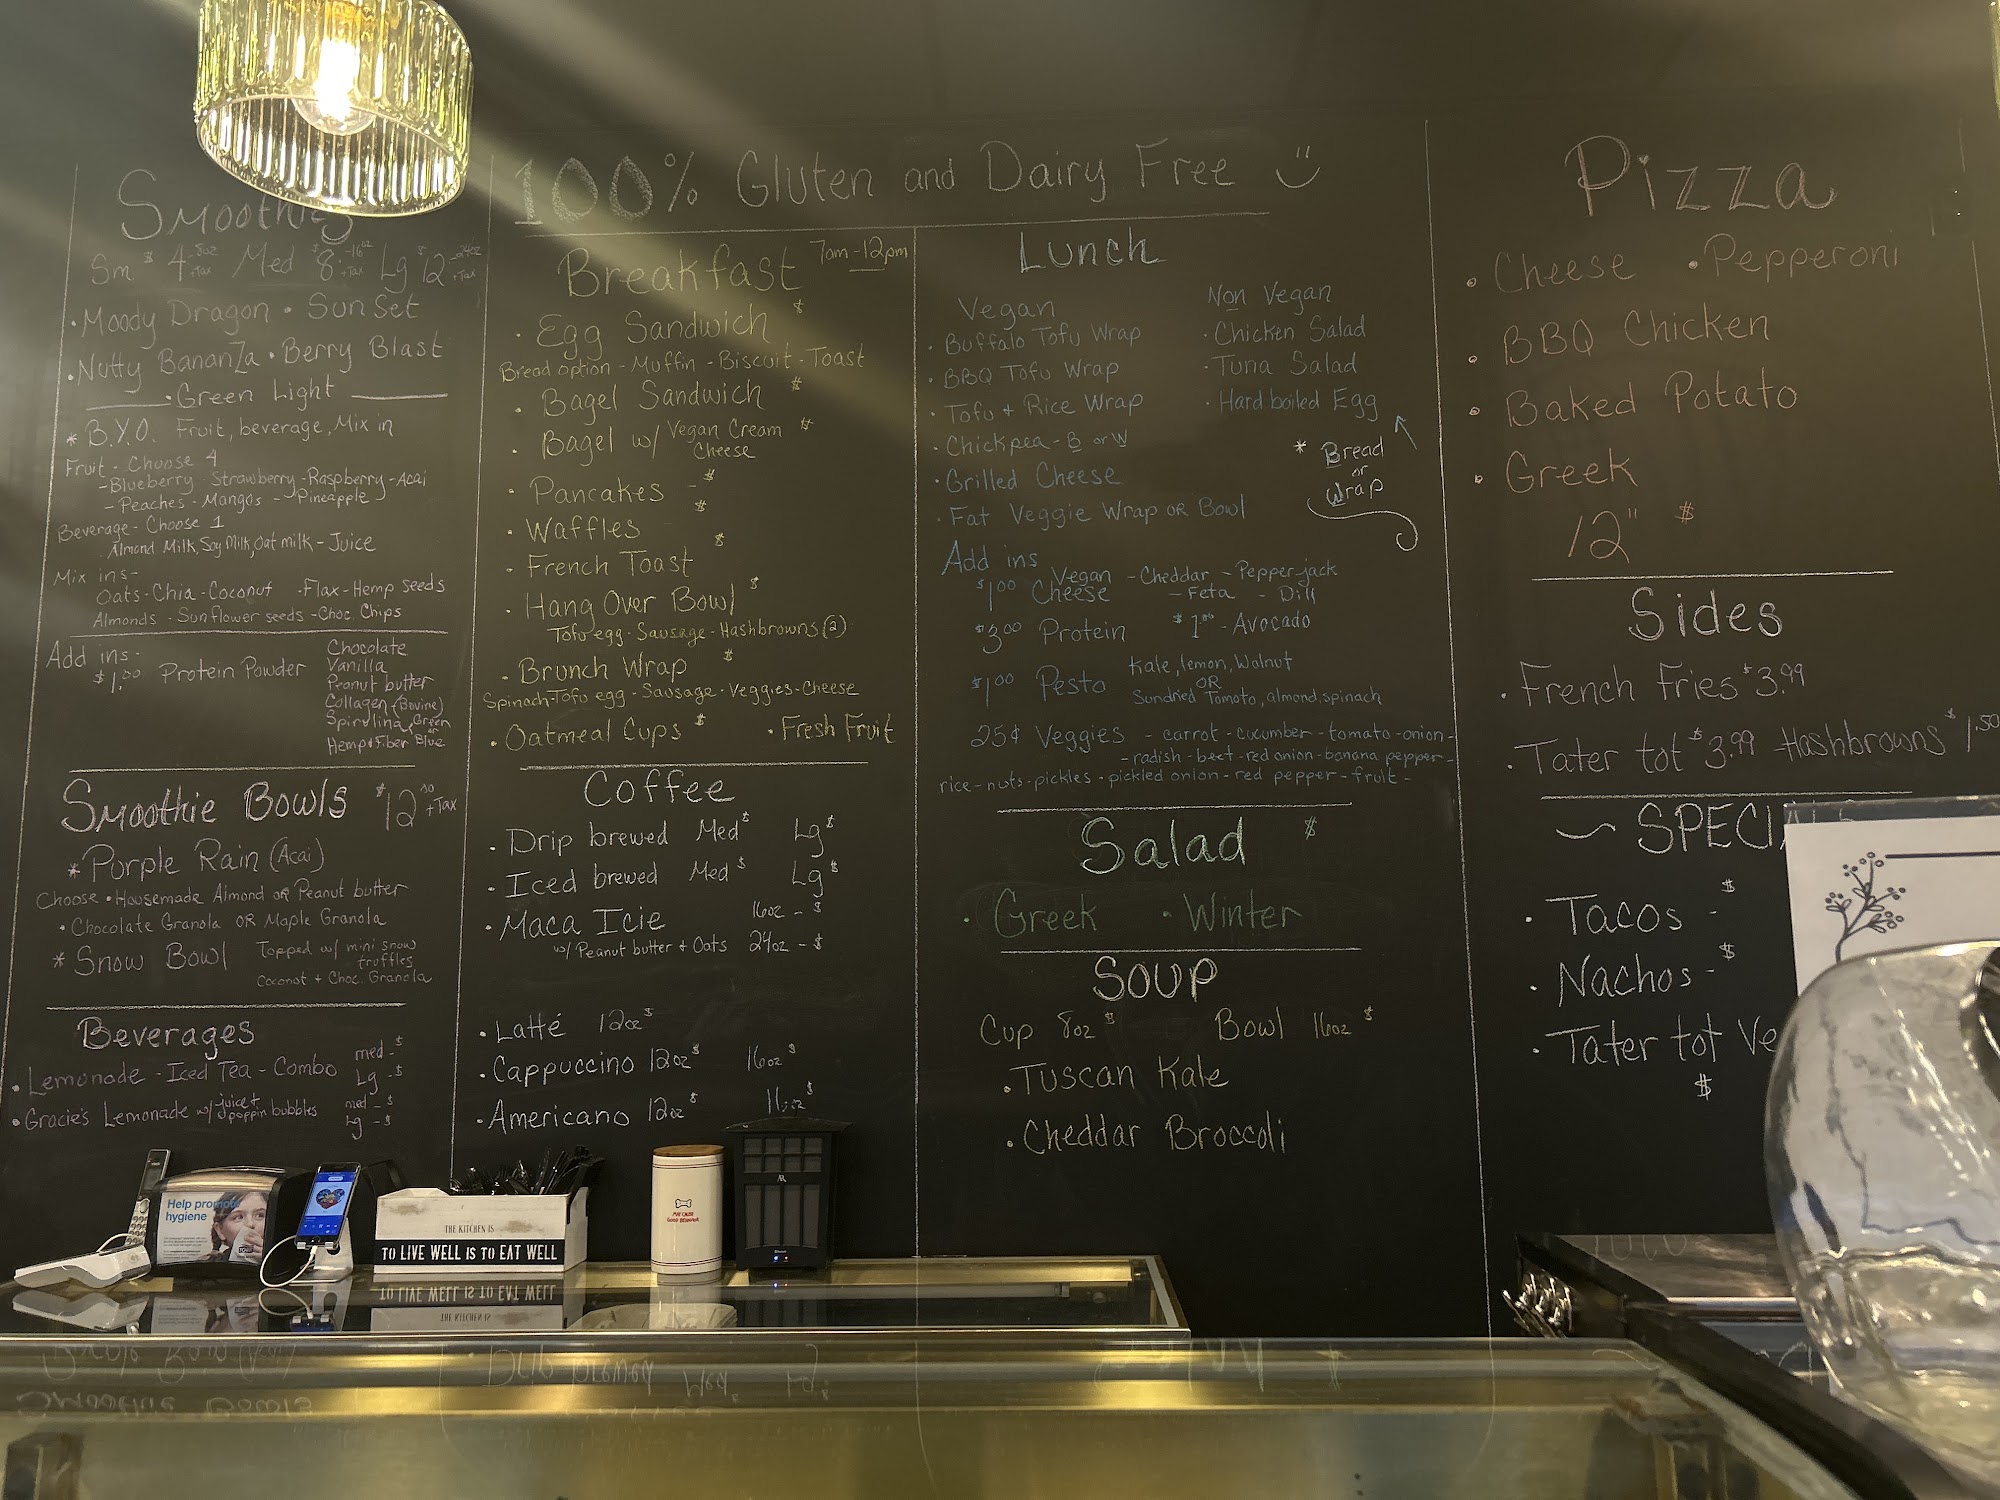 100% Gluten and Dairy Free
Smoothies
Sm $4 -8oz +Tax Med $8 -16oz +Tax Lg $12 -24oz +Tax
• Moody Dragon • SunSet
• Nutty BananZa • Berry Blast
• Green Light
* B.Y.O. Fruit, beverage, Mix in
Fruit - Choose 4
- Blueberry - Strawberry - Raspberry - Acai
- Peaches - Mangos - Pineapple
Beverage - Choose 1
Almond Milk, Soy Milk, Oat milk - Juice
Mix ins -
Oats - Chia - Coconut - Flax - Hemp seeds
Almonds - Sunflower seeds - Choc. Chips
Add ins -
$1.00 Protein Powder
Chocolate
Vanilla
Peanut butter
Collagen (Bovine)
Spirulina, Green or Blue
Hemp & Fiber
Smoothie Bowls $12.00 +Tax
* Purple Rain (Acai)
Choose • Housemade Almond OR Peanut butter
• Chocolate Granola OR Maple Granola
* Snow Bowl Topped w/ mini snow truffles
Coconut + Choc. Granola
Beverages
• Lemonade - Iced Tea - Combo med - $ Lg - $
• Gracie's Lemonade w/ juice + poppin bubbles med - $ Lg - $
Breakfast 7am - 12pm
• Egg Sandwich $
Bread option - Muffin - Biscuit - Toast
• Bagel Sandwich $
• Bagel w/ Vegan Cream Cheese $
• Pancakes - $
• Waffles $
• French Toast $
• Hang Over Bowl $
Tofu egg - Sausage - Hashbrowns (2)
• Brunch Wrap $
Spinach - Tofu egg - Sausage - Veggies - Cheese
• Oatmeal Cups $ • Fresh Fruit
Coffee
• Drip brewed Med $ Lg $
• Iced brewed Med $ Lg $
• Maca Icie 16oz - $
w/ Peanut butter + Oats 24oz - $
• Latté 12oz $
• Cappuccino 12oz $ 16oz $
• Americano 12oz $ 16oz $
Lunch
Vegan
• Buffalo Tofu Wrap
• BBQ Tofu Wrap
• Tofu + Rice Wrap
• Chickpea - B or W
• Grilled Cheese
• Fat Veggie Wrap OR Bowl
Non Vegan
• Chicken Salad
• Tuna Salad
• Hard boiled Egg
* Bread
or
Wrap
Add ins
$1.00 Vegan Cheese - Cheddar - Pepperjack
- Feta - Dill
$3.00 Protein $1.00 - Avocado
$1.00 Pesto Kale, lemon, Walnut
OR
Sundried Tomato, almond, spinach
25¢ Veggies - carrot - cucumber - tomato - onion -
- radish - beet - red onion - banana pepper -
rice - nuts - pickles - pickled onion - red pepper - fruit -
Salad $
• Greek • Winter
Soup
Cup 8oz $ Bowl 16oz $
• Tuscan Kale
• Cheddar Broccoli
Pizza
• Cheese • Pepperoni
• BBQ Chicken
• Baked Potato
• Greek
12" $
Sides
• French Fries $3.99
• Tater tot $3.99 Hashbrowns $1.50
~ SPECIALS
• Tacos - $
• Nachos - $
• Tater tot Ve
$
Help promote
hygiene
THE KITCHEN IS
TO LIVE WELL IS TO EAT WELL
MAY CAUSE
GOOD BEHAVIOR